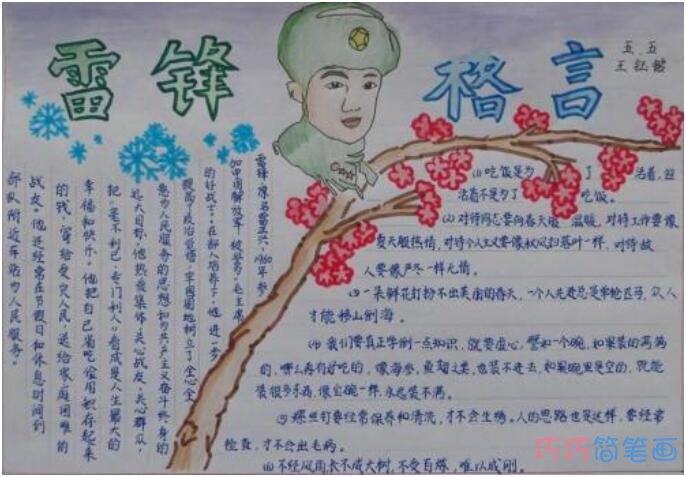 雷锋
格言
五、五
王钰
雷锋,原名雷正兴,1960年参
加中国解放军,被誉为“毛主席
的好战士”。在部队培养下,他进一步
提高了政治觉悟,牢固地树立了全心全
意为人民服务的思想和为共产主义奋斗终身的
远大目标。他热爱集体,关心战友,关心群众,
把“毫不利己,专门利人”看成是人生最大的
幸福和快乐。他把自己省吃俭用积存起来
的钱,寄给受灾人民,送给家庭困难的
战友。他还经常在节假日和休息时间到
部队附近车站为人民服务。
(1)吃饭是为了活着,但
活着不是为了吃饭。
(2)对待同志要向春天般温暖,对待工作要像
夏天般热情,对待个人主义要像秋风扫落叶一样,对待敌
人要像严冬一样无情。
(3)一朵鲜花打扮不出美丽的春天,一个人先进总是单枪匹马,众人
才能移山倒海。
(4)我们要真正学倒一点知识,就要虚心,譬如一个碗,如果装的满满
的,哪么再有好吃的,像海参,鱼翅之类,也装不进去,如果碗里是空的,就能
装很多东西,像宝碗一样,永远装不满。
(5)螺丝钉要经常保养和清洗,才不会生锈。人的思路也是这样,要经常
检查,才不会出毛病。
(6)不经风雨长不成大树,不受百炼,难以成刚。
巧巧简笔画